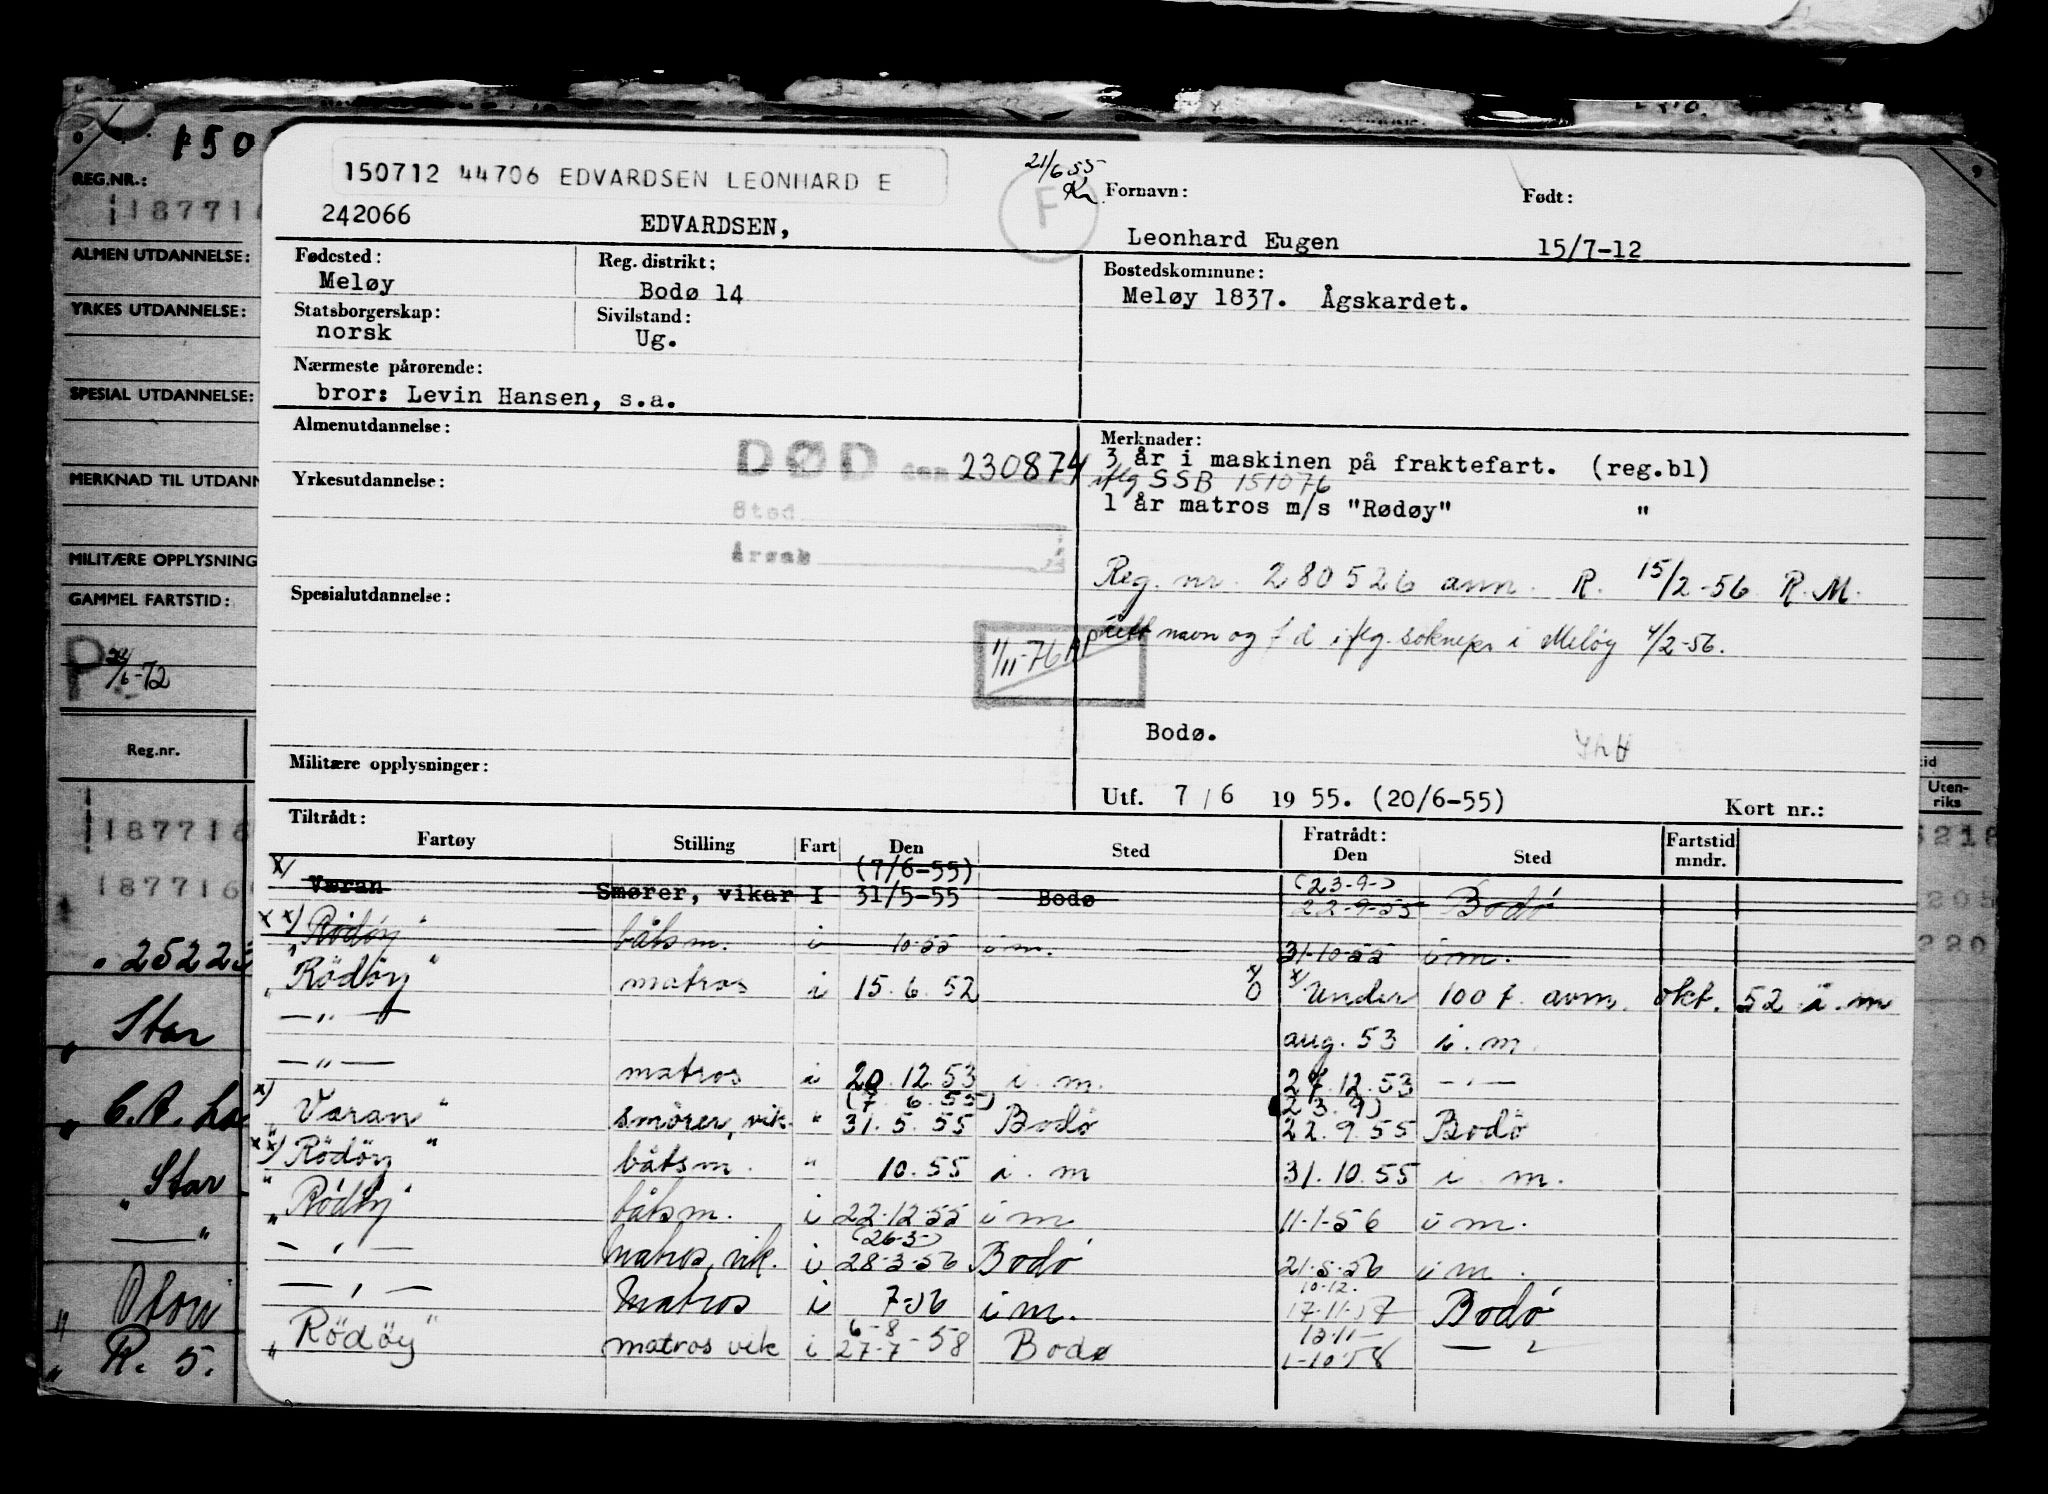 150712 44706 EDVARDSEN LEONHARD E
21/6 55
F
Fornavn:
Født:
242066
EDVARDSEN,
Leonhard Eugen
15/7-12
Fødested:
Meløy
Reg. distrikt:
Bodø 14
Bostedskommune:
Meløy 1837. Ågskardet.
Statsborgerskap:
norsk
Sivilstand:
Ug.
Nærmeste pårørende:
bror: Levin Hansen, s.a.
Almenutdannelse:
DØD den 230874
Sted
Årsak
Yrkesutdannelse:
Merknader:
3 år i maskinen på fraktefart. (reg.bl)
iflg SSB 151076
1 år matros m/s "Rødøy" "
Reg. nr. 280526 ann. R. 15/2-56 R.M.
Rett navn og f d iflg. soknepr i Meløy 4/2-56.
Spesialutdannelse:
1/11-76
Bodø.
Militære opplysninger:
Utf. 7 / 6 1955. (20/6-55)
Kort nr.:
Tiltrådt:
Fratrådt:
Fartøy Stilling Fart Den Sted Den Sted Fartstid mndr.
(7/6-55) (23-9-)
x) Væran Smører, vikar I 31/5-55 Bodø 22-9-55 Bodö
xx) "Rödöy" båtsm. i 10-55 i m. 31-10-55 i m.
"Rödöy" matros i 15.6.52 x) Under 100 t. avm. okt. 52 i.m
— " — aug. 53 i.m.
— " — matros i 20.12.53 i.m. 27.12.53 — " —
(7.6.55) (23.9)
x) "Væran" smörer, vik. " 31.5.55 Bodö 22.9.55 Bodö
xx) "Rödöy" båtsm. " 10.55 i.m 31.10.55 i.m.
"Rödöy" båtsm. i 22-12-55 i m 11-1-56 i m.
(26-3-)
— " — Matros, vik. i 28-3-56 Bodö 21-5-56 i m.
10-12.
— " — Matros i 7-56 i m. 17-11-57 Bodö
6-8
"Rödöy" matros vik i 27-7-58 Bodø 1-10-58 — " —
150
REG.NR.:
187716
ALMEN UTDANNELSE:
YRKES UTDANNELSE:
SPESIAL UTDANNELSE:
MERKNAD TIL UTDANN
MILITÆRE OPPLYSNING
GAMMEL FARTSTID:
P
24/6-72
Reg.nr.
187716
187716
" 2522
" Star
" Star
— " —
" R. 5.
tid
Uten-
riks
5218
205
220